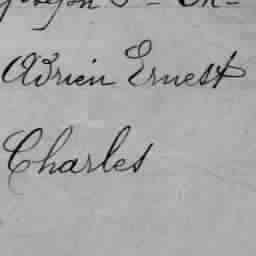 Adrien Ernest
Charles